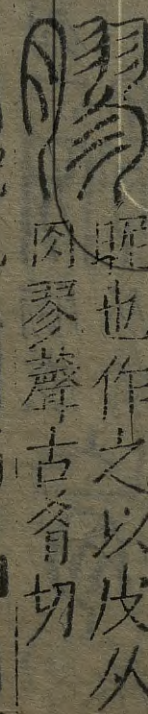 膠
昵也作之以皮从
肉翏聲古肴切